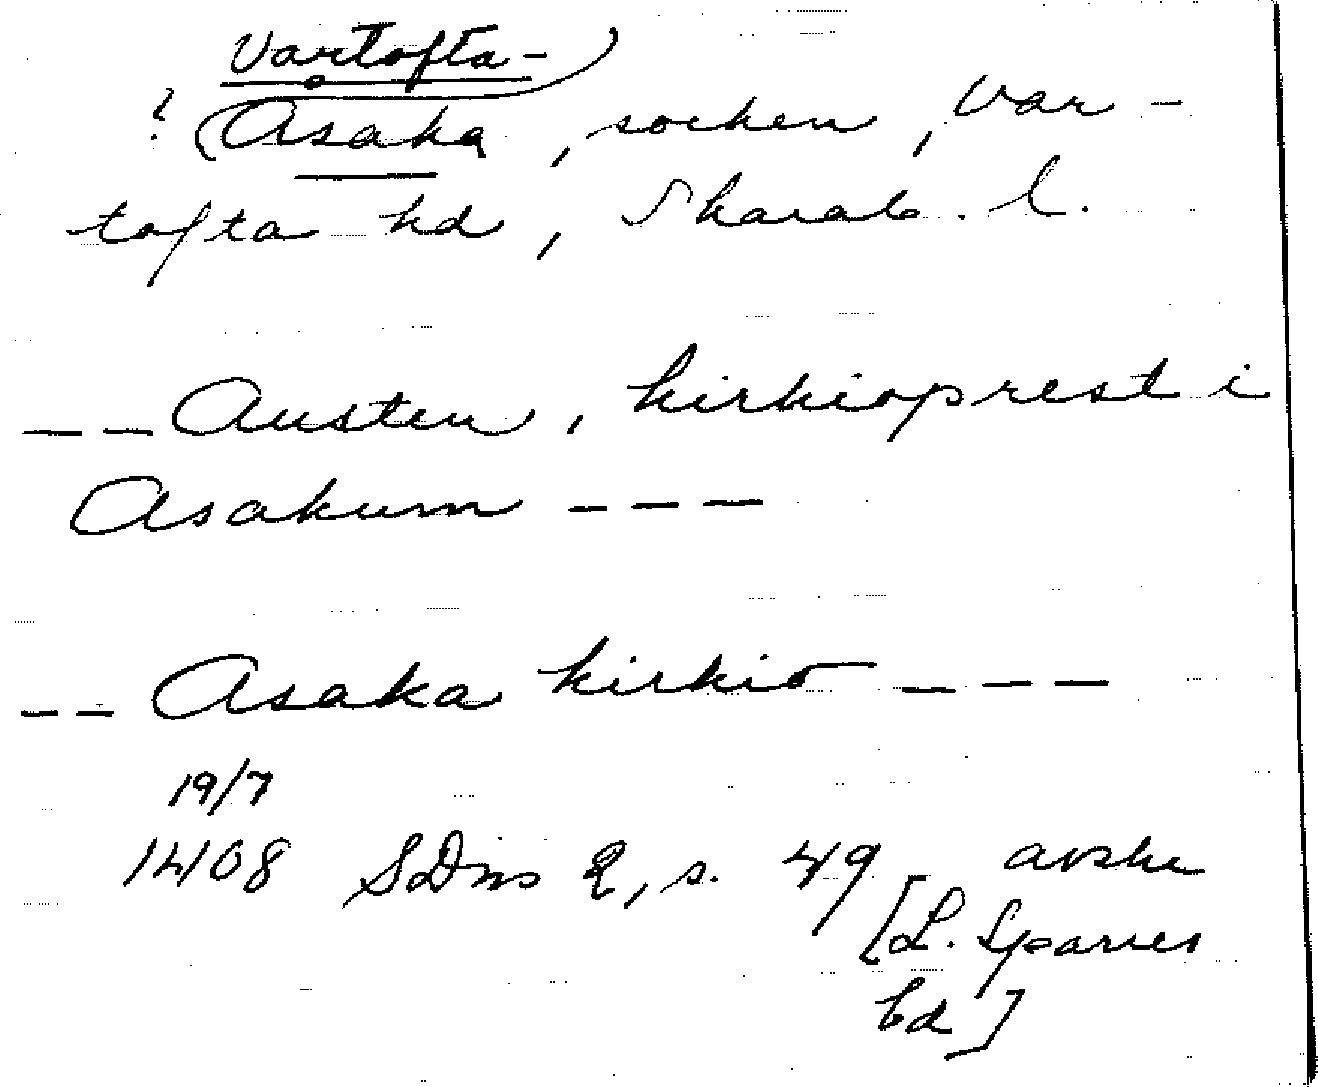 Vartofta-
? (Åsaka, socken, Var-
tofta hd, Skarab. l.
-- Austen, kirkioprest i
Asakum ---
-- Asaka kirkio ---
19/7
1408 SDns 2, s. 49 avskr
[L. Sparres
bd]